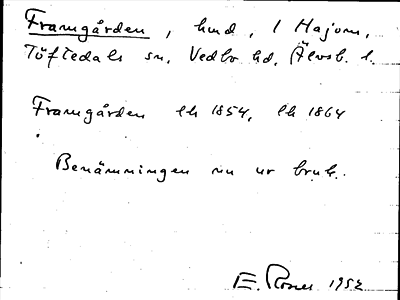 Framgården, hmd, i Hajom,
Töftedals sn, Vedbo hd, Älvsb. l.
Framgården lh 1854, lh 1864
Benämningen nu ur bruk.
E. Rosell 1952